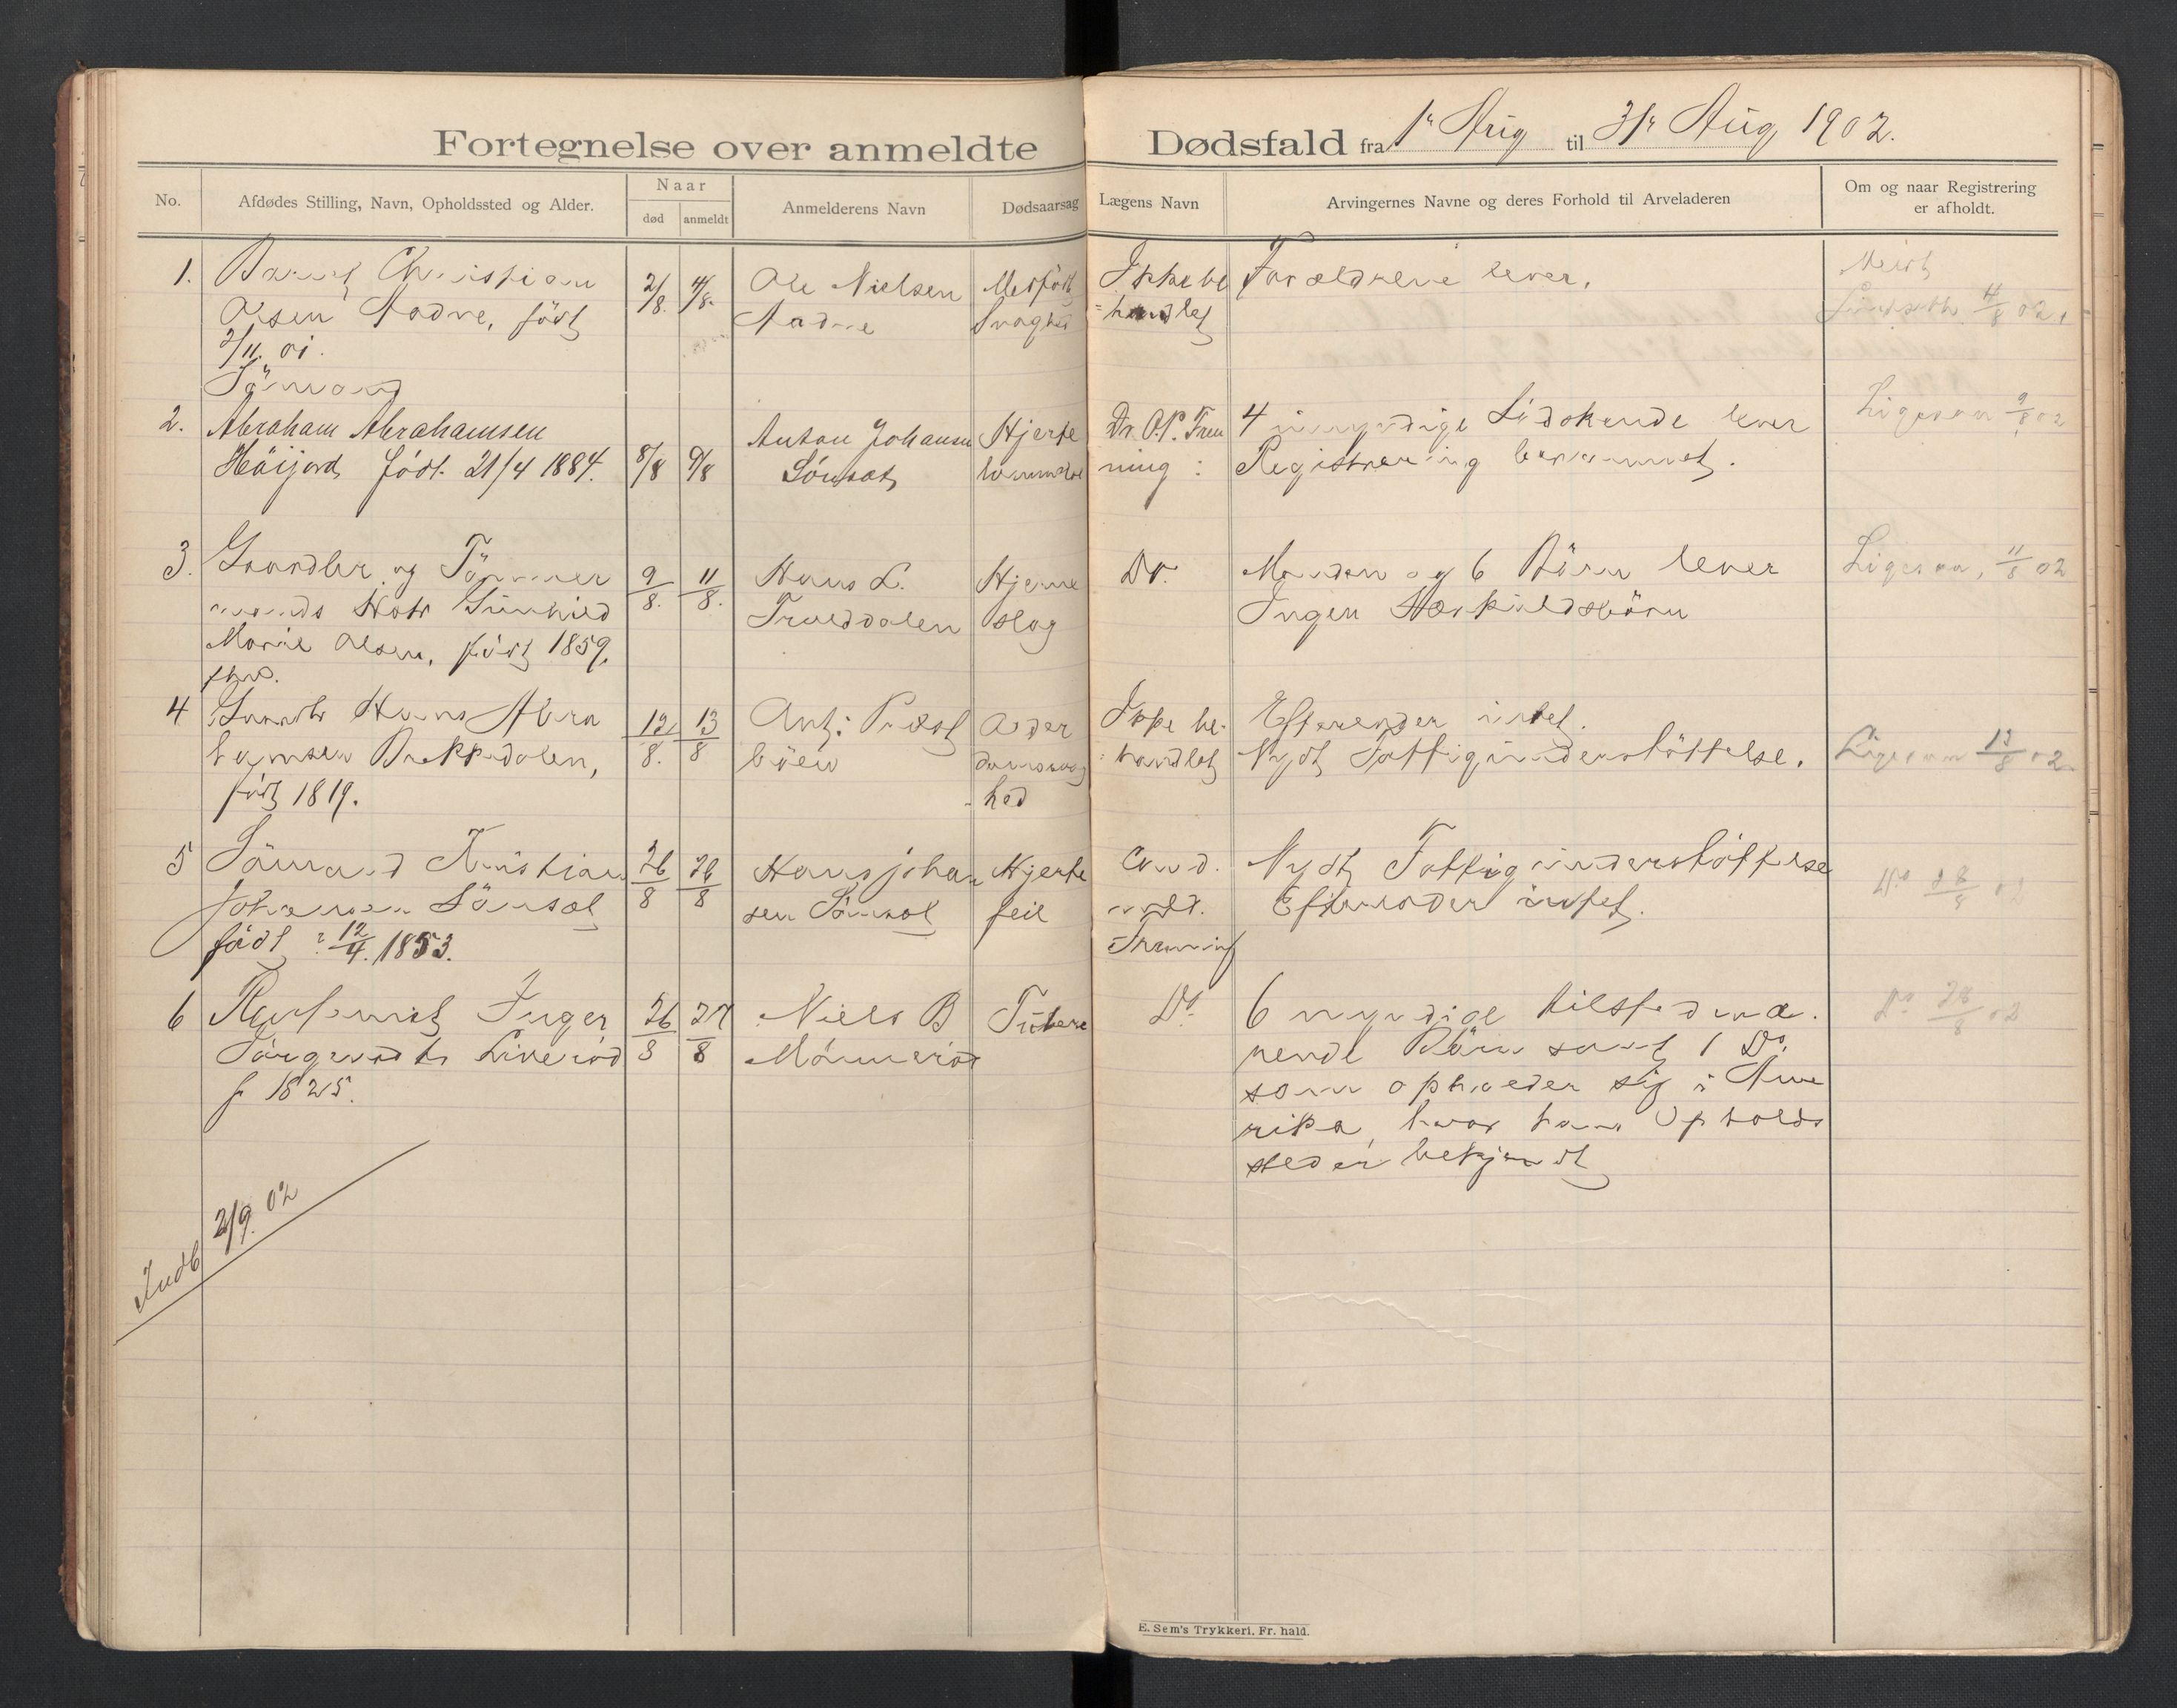 Fortegnelse over anmeldte Dødsfald fra 1ʳ Aug til 31ʳ Aug 1902.
No.
Afdødes Stilling, Navn, Opholdssted og Alder.
Naar
død
anmeldt
Anmelderens Navn
Dødsaarsag
Lægens Navn
Arvingernes Navne og deres Forhold til Arveladeren
Om og naar Registrering
er afholdt.
1.
Barnet Christian
Olsen Aadne, født
2/11. 01.
2/8.
4/8.
Ole Nielsen
Aadne
Medfødt
Svaghed
Ikke be
=handlet
Forældrene lever.
4/8 02.
2.
Sømand
Abraham Abrahamsen
Høijord født. 21/4 1884.
8/8
9/8
Anton Johansen
Sønset
Hjerte
Dr. O.P. Trem
ning :
4 umyndige Lidskende lever
Registrering
Ligesaa 9/8 02
3.
Gaardbr. og Tømmer
mands Kone Gunhild
Marie Olsen, født 1859.
9/8.
11/8.
Hans L.
Trolddalen
Hjerne
slag
Do.
Manden og 6 Børn lever
Ingen Særkuldsbørn
Ligesaa, 11/8 02
4
fhv.
Gaardbr Hans Abra
hamsen Bakkedalen,
født 1819.
12/8.
13/8
Ant: Præst
bøen
Alder
domssvag
hed
Ikke be-
=handlet
Efterlader intet.
Nydt Fattigunderstøttelse.
Ligesaa 13/8 02.
5
Sømand Kristian
Johansen Sønset
født ? 12/4. 1853.
26/8
26/8
Hans Johan
sen Sønset
Hjerte
feil
Cand.
med.
Tremning
Nydt Fattigunderstøttelse
Efterlader intet.
Do 28/8 02
6
Inger
Jørgensdtr Liverød
f 1825.
26/8
27/8
Niels B
Mønnerød
Do
6 myndige tilstedevæ-
rende Børn samt 1 Do.
som opholder sig i Ame
rika, hvor hans Opholds
sted er bekjendt
Do 28/8 02
Indb 2/9. 02
E. Sem's Trykkeri, Fr. hald.